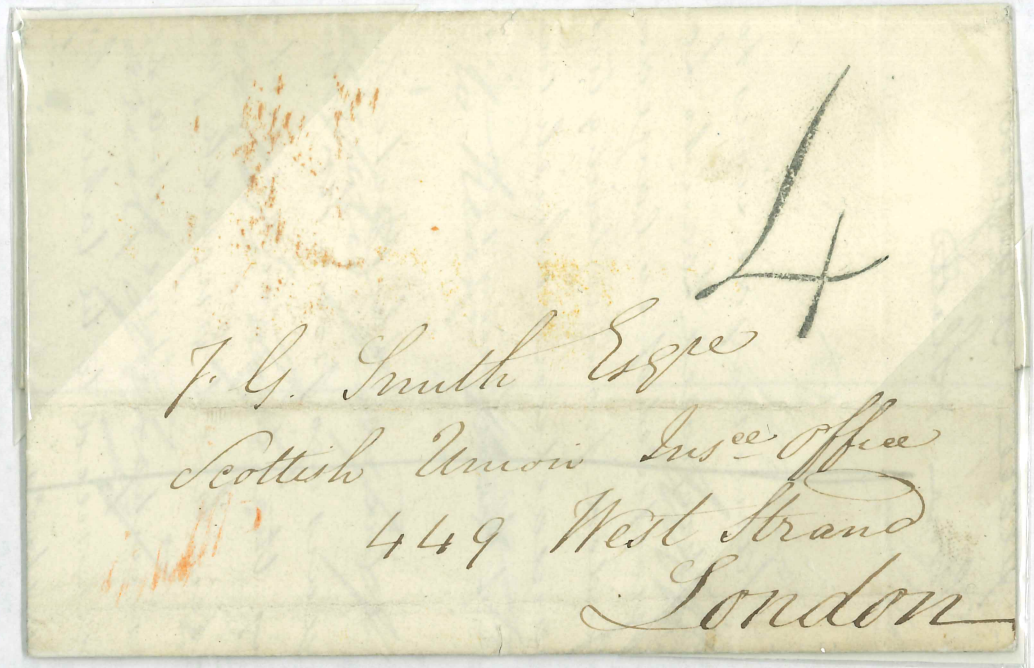 4
F. G. Smith Esqre
Scottish Union Insce Office
449 West Strand
London